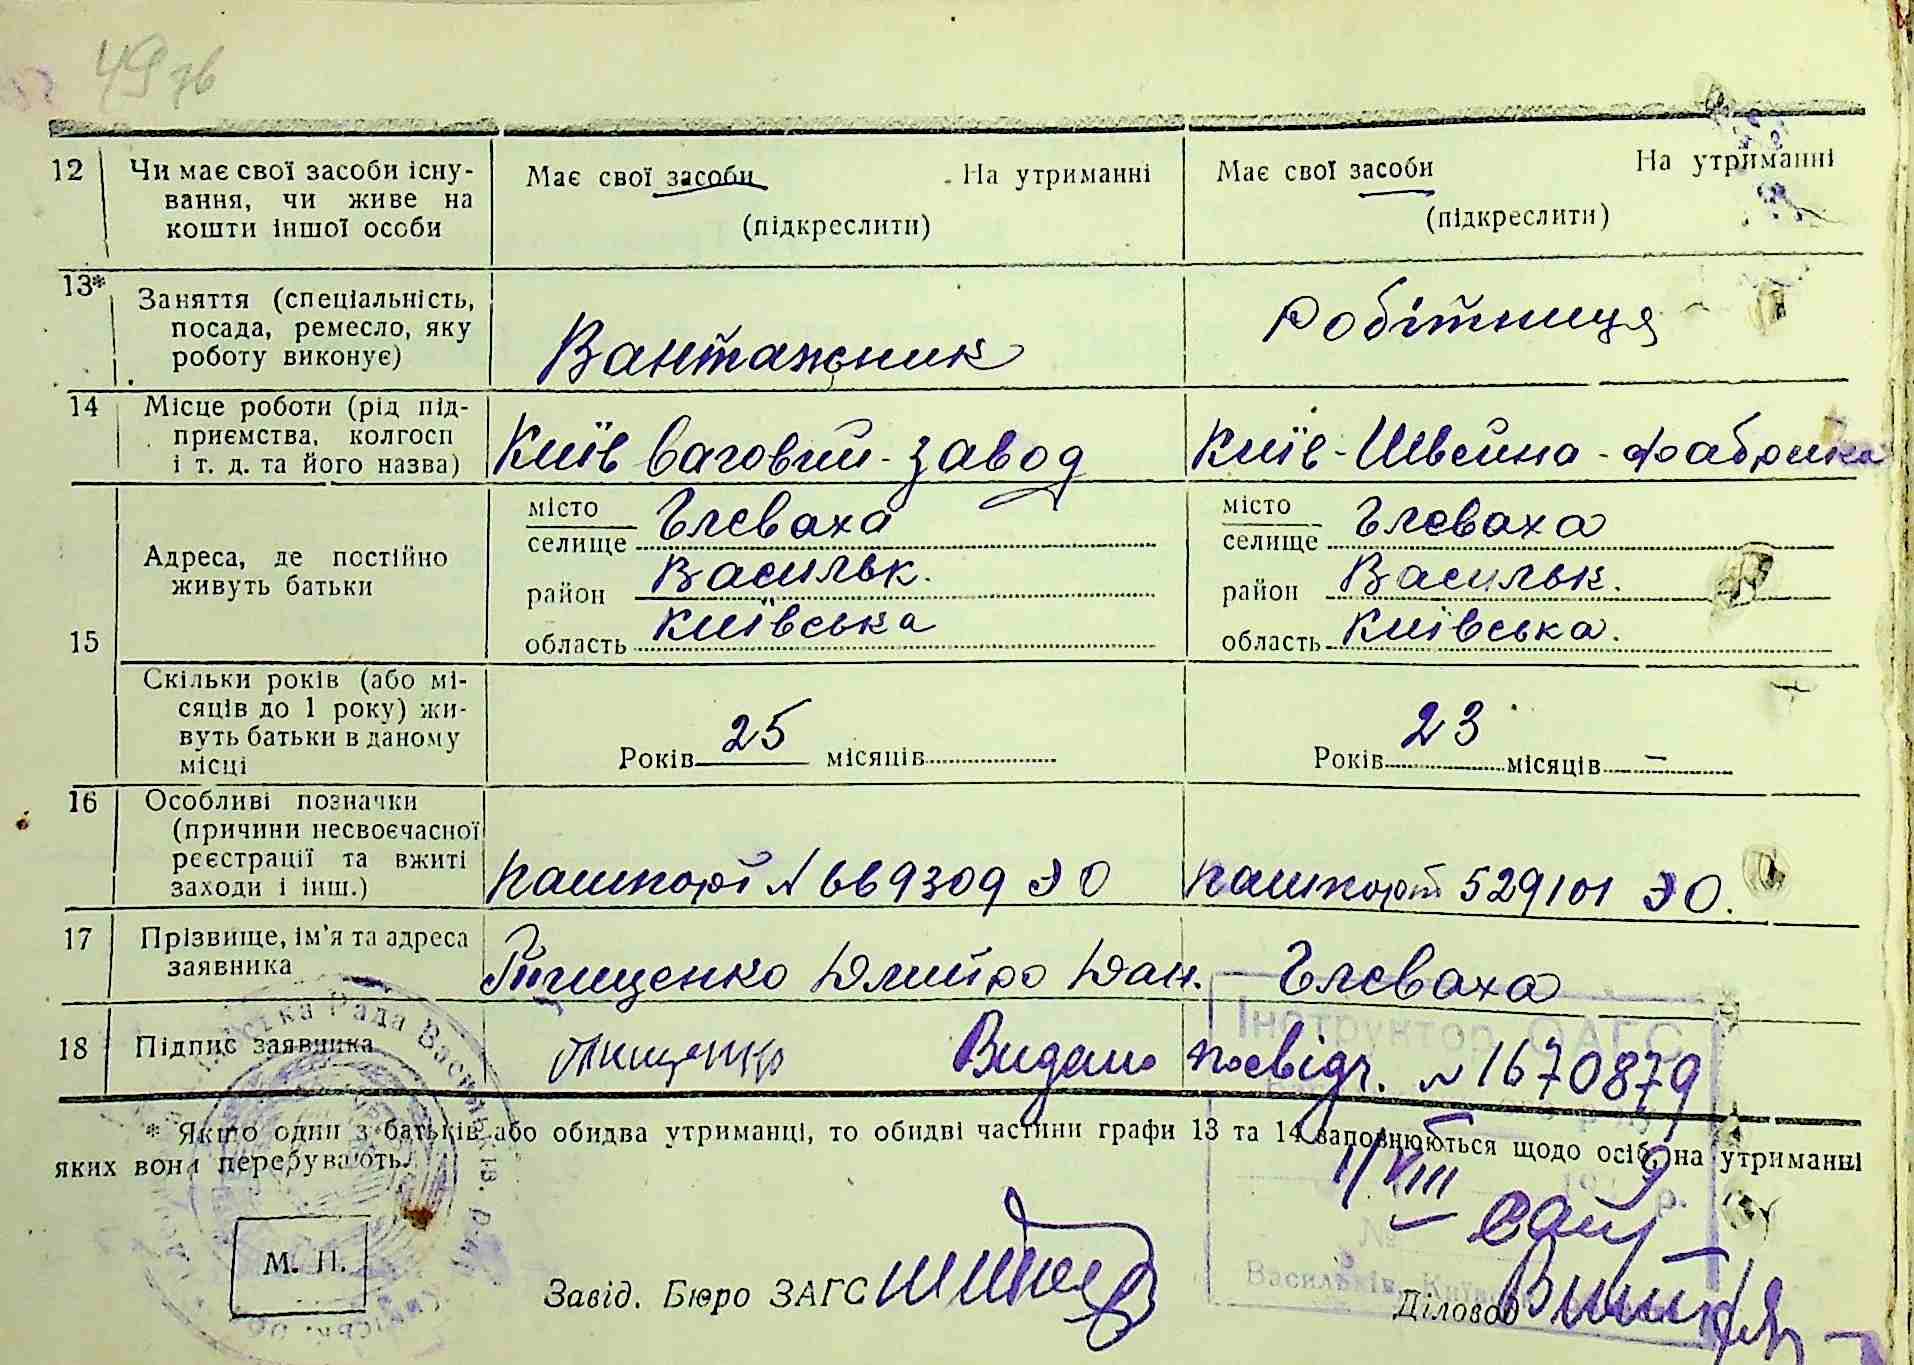 49 зв
12 Чи має свої засоби існу-
вання, чи живе на
кошти іншої особи
Має свої засоби На утриманні
(підкреслити)
Має свої засоби На утриманні
(підкреслити)
13* Заняття (спеціальність,
посада, ремесло, яку
роботу виконує)
Вантажник
Робітниця
14 Місце роботи (рід під-
приємства, колгосп
і т. д. та його назва)
Київ ваговий-завод
Київ-Швейна-фабрика
15 Адреса, де постійно
живуть батьки
місто
селище Глеваха
район Васильк.
область Київська
місто
селище Глеваха
район Васильк.
область Київська.
Скільки років (або мі-
сяців до 1 року) жи-
вуть батьки в даному
місці
Років 25 місяців
Років 23 місяців –
16 Особливі позначки
(причини несвоєчасної
реєстрації та вжиті
заходи і інш.)
пашпорт № 669309 ЭО
пашпорт 529101 ЭО.
17 Прізвище, ім'я та адреса
заявника
Тищенко Дмитро Дан. Глеваха
18 Підпис заявника
Тищенко
Видано посвідч. № 1670879
Інструктор ОАГС
* Якщо один з батьків або обидва утриманці, то обидві частини графи 13 та 14 заповнюються щодо осіб, на утриманні
яких вони перебувають.
11 VIII
р.
№
Васильків, Київ
М. П.
Завід. Бюро ЗАГС
Діловод